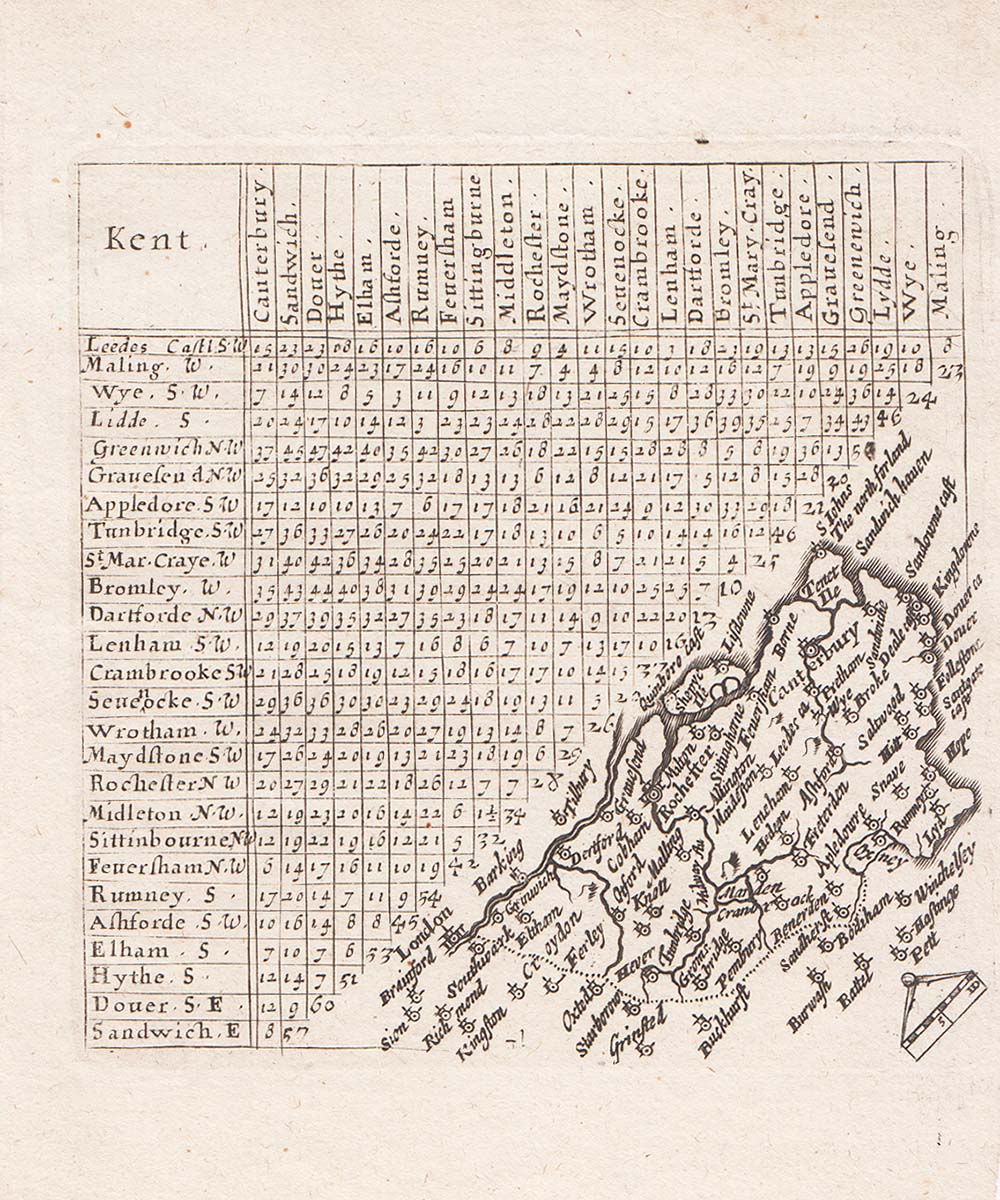 Kent.
Canterbury.
Sandwich.
Douer
Hythe.
Elham.
Aſhforde.
Rumney.
Feuerſham
Sittingburne
Middleton.
Rocheſter.
Maydſtone.
Wrotham.
Seuenocke.
Crambrooke.
Lenham.
Dartforde.
Bromley.
St Mary Cray.
Tunbridge.
Appledore.
Graueſend.
Greenewich.
Lydde.
Wye.
Maling
Leedes Caſtl. S W 15 23 23 08 16 10 16 10 6 8 9 4 11 15 10 3 18 23 19 13 13 15 26 19 10 8
Maling. W. 21 30 30 24 23 17 24 16 10 11 7 4 4 8 12 10 12 16 12 7 19 9 19 25 18 23
Wye. S. W. 7 14 12 8 5 3 11 9 12 13 18 13 21 25 15 8 28 33 30 22 10 24 36 14 24
Lidde. S 20 24 17 10 14 12 3 23 23 24 28 22 28 29 15 17 36 39 35 25 7 34 43 46
Greenwich N.W 37 45 47 42 40 35 42 30 27 26 18 22 15 15 28 28 8 5 8 19 36 13 5
Graueſend N W 25 32 36 32 29 25 32 18 13 13 6 12 8 12 21 17 5 12 8 15 28 20
Appledore. S W 17 12 10 10 13 7 6 17 17 18 21 16 21 24 9 12 30 33 29 18 22
Tunbridge. S.W 27 36 33 27 26 20 24 22 17 18 13 10 6 5 10 14 14 16 12 46
St Mar. Craye. W 31 40 42 36 34 28 35 25 20 21 13 15 8 7 21 21 5 4 25
Bromley. W. 35 43 44 40 38 31 39 29 24 24 17 19 12 10 25 25 7 10
Dartforde N.W 29 37 39 35 32 27 35 23 18 17 11 14 9 10 22 20 13
Lenham S.W 12 19 20 15 13 7 16 8 6 7 10 7 13 17 10 16
Crambrooke S W 21 28 25 18 16 9 12 15 15 16 17 10 14 15 37
Seuenocke. S.W 29 36 36 30 30 23 29 24 18 19 13 11 3
Wrotham. W. 24 32 33 28 26 20 27 19 13 14 8 7 26
Maydſtone S.W 17 26 24 20 19 13 21 12 18 19 6 25
Rocheſter N W 20 27 29 21 22 18 26 12 7 7 28
Midleton N.W 12 19 23 20 16 14 22 6 1½ 34
Sittinbourne N W 12 19 22 19 16 12 21 5 32
Feuerſham N.W 6 14 17 16 11 10 19 42
Rumney. S 17 20 14 7 11 9 54
Aſhforde S.W. 10 16 14 8 8 45
Elham. S 7 10 7 6 53
Hythe. S 12 14 7 51
Douer. S. E 12 9 60
Sandwich. E 8 57
S Iohns
The north forland
Sandwich hauen
Sandowne caſt
Kingdowne
Deale caſt
Douer ca
Douer
Folleſtone
Tenet Ile
Sandwiche
Canterbury
Borne
Pretham
Wye
Broke
Saltwood
Hit
Hope
Lyſdowne
Quinboro caſt
Shepey Ile
Feuerſham
Sittinghorne
Milton
Rocheſter
Allington
Maidſton
Leedes ca
Lenham
Aſhford
Snave
Rumney
Lyd
Oxney
Apledowre
Tenterden
Halden
Tilbury
Graueſent
Dertford
Cobham
Malling
Otford
Knoll
Medway
Marden
Cranbr
Barking
Grinwich
London
Brainford
Southwerk
Eltham
Croydon
Ferley
Sion
Richmond
Kingſton
Hever
Tunbridge
Grombridge
Pembury
Oxted
Starborow
Grinſted
Buckhurſt
Benenden
Sandherſt
Bodiham
Winchelſey
Haſtinge
Pett
Burwaſh
Battel
5
10